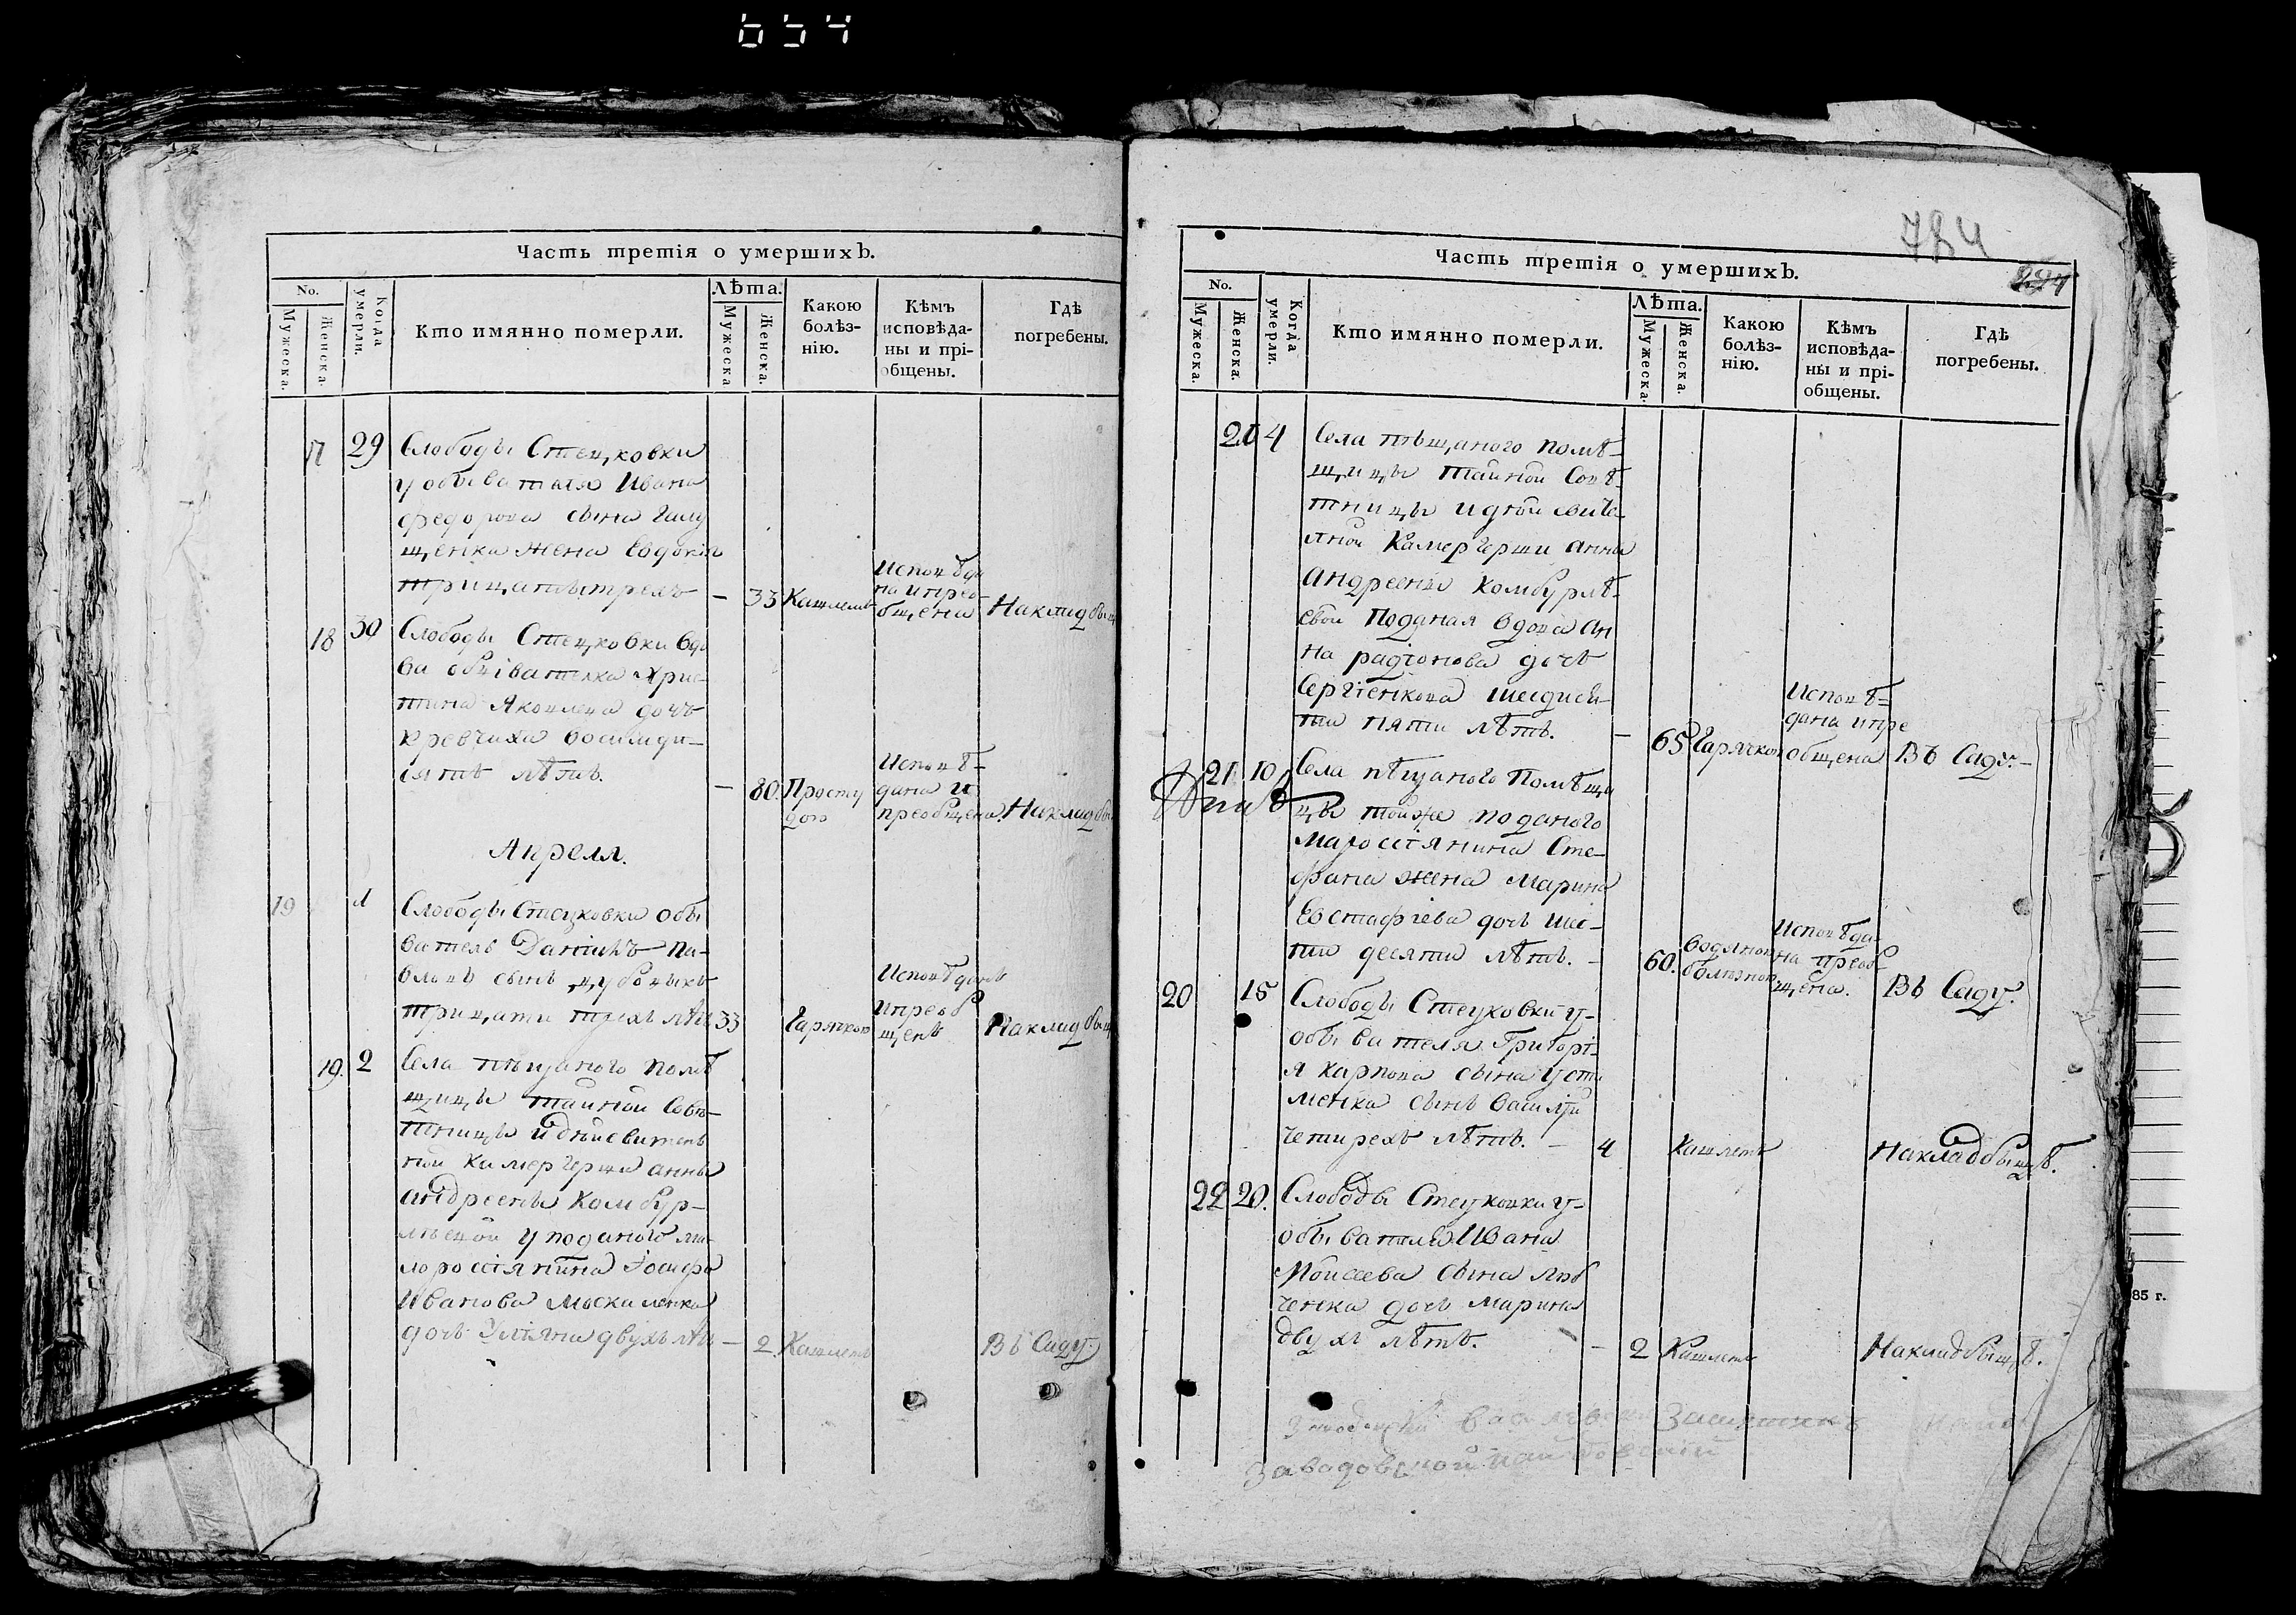 654
Часть третія о умершихъ.
No. Мужеска. Женска.
Когда умерли.
Кто имянно померли.
Лѣта. Мужеска Женска.
Какою болѣз-
нію.
Кѣмъ
исповѣда-
ны и прі-
общены.
Гдѣ
погребены.
17 29 Слободы Стецковки
у обивателя Ивана
Федорова сына Галу
щенка жена Евдокія
трицатьтрехъ — 33 Кашлемъ
Исповѣда
на и преоб
бщена На кладбищ
18 30 Слободы Стецковки вдо
ва обивателка Хрис-
тина Яковлева дочь
Кревчиха восимди-
сятъ лѣтъ. — 80. Просту
дою
Исповѣ-
дана и
преобщена. На кладби
Апреля.
19 1 Слободы Стецковки обы
ватель Даніилъ Па-
вловъ сынъ
трицати трехъ лѣт 33 Гарячкою
Исповѣданъ
и преоб
щенъ На кладбищ
19. 2 Села пѣщаного помѣ
щицы тайной Совѣ-
тницы и дѣйсвител
ной камергерши анны
андреевны Комбур-
лѣевой у поданого ма-
лоросіянина Іосифа
Иванова Москаленка
дочь Уліяна двухъ лѣт — 2. Кашлемъ Въ Саду.
784
Часть третія о умершихъ.
No. Мужеска. Женска.
Когда умерли.
Кто имянно померли.
Лѣта. Мужеска. Женска.
Какою
болѣз-
нію.
Кѣмъ
исповѣда-
ны и прі-
общены.
Гдѣ
погребены.
20 4 Села пѣщаного помѣ-
щицы тайной Совѣ-
тницы
лной Камергерши анны
Андреевны Комбурлѣ-
евой поданая вдова Ан
на радіонова дочь
Сергіенкова шесдися-
ти пяти лѣтъ. — 65 Гарячкою
Исповѣ-
дана и пре
общена Въ Саду.
21 10 Села пѣщаного помѣщи
цы тойже поданого
малоросіянина Сте-
фана жена Марина
Евстафіева дочь шес-
ти десяти лѣтъ. — 60. водяною
болѣзною
Исповѣда-
на преоб
щена. Въ Саду.
20 15 Слободы Стецковки у-
обивателя Григорі-
я Карпова сына Усти
менка сынъ Василій
четирехъ лѣтъ. — 4 Кашлемъ На кладбищѣ.
22 20. Слободы Стецковки у-
обивателя Ивана
Моисеева сына Люб
ченка дочь Марина
двухъ лѣтъ. — 2 Кашлемъ На кладбищѣ.
85 г.